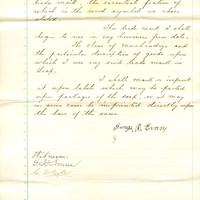 trade mark, the essential feature of
which is the word symbol as above
stated.
This trade mark I shall
begin to use in my business from date.
The class of merchandise and
the particular description of goods upon
which I use my said trade mark is
Soap.
I shall mark or imprint
it upon labels which may be pasted
upon packages of the soap, or it may
in some cases be imprinted directly upon
the bars of the same.
George R. Evans
Witnesses: